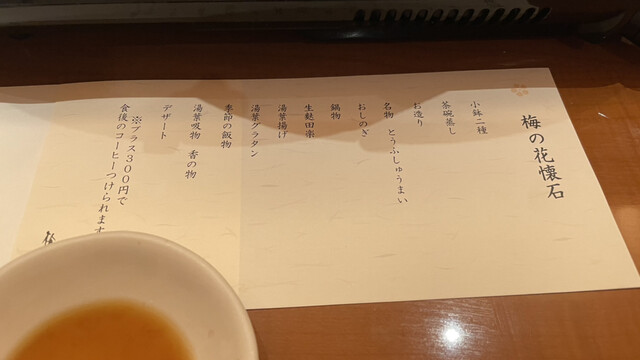 梅の花懐石
小鉢二種
茶碗蒸し
お造り
名物 とうふしゅうまい
おしのぎ
鍋物
生麩田楽
湯葉揚げ
湯葉グラタン
季節の飯物
湯葉吸物 香の物
デザート
※プラス300円で
食後のコーヒーつけられます